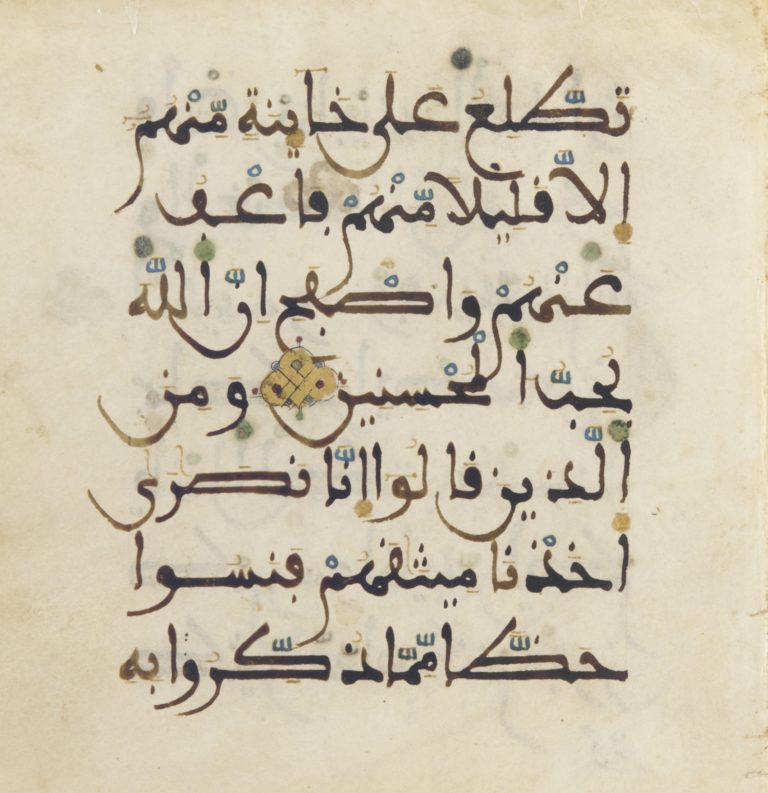 تَطَّلِعُ عَلَىٰ خَآئِنَةٍ مِّنْهُمْ
إِلَّا قَلِيلًا مِّنْهُمْ فَاعْفُ
عَنْهُمْ وَاصْفَحْ إِنَّ اللَّهَ
يُحِبُّ الْمُحْسِنِينَ وَمِنَ
الَّذِينَ قَالُوا إِنَّا نَصَٰرَىٰ
أَخَذْنَا مِيثَٰقَهُمْ فَنَسُوا
حَظًّا مِّمَّا ذُكِّرُوا بِهِ